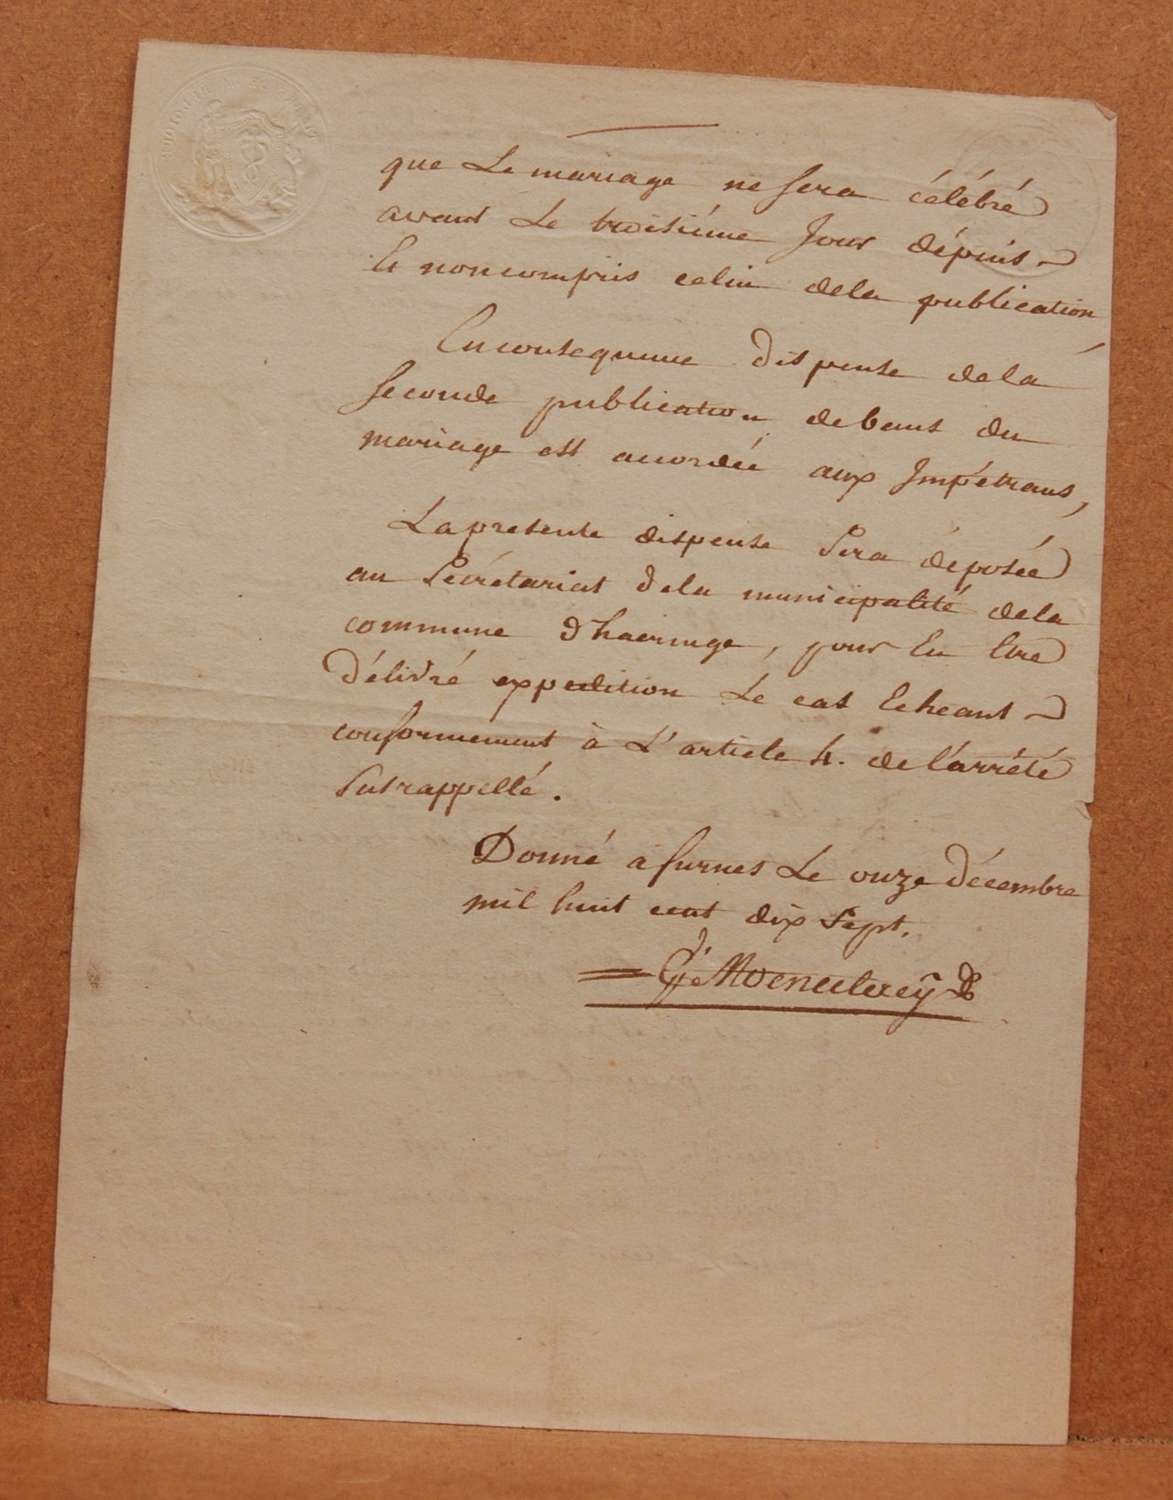 que Le mariage ne sera célébré
avant Le troisiéme Jour dépuis
Et non compris celui dela publication
En consequence dispense de la
seconde publication de bans du
mariage est accordée aux Impétrans,
La presente dispense Sera déposée
au Sécrétariat dela municipalité dela
commune d'haeringe, pour En Etre
Délivré expedition Le cas Echeant
conformement à L'article 4. de l'arrêté
Susrappellé.
Donné à furnes Le onze Décembre
mil huit cent dix Sept.